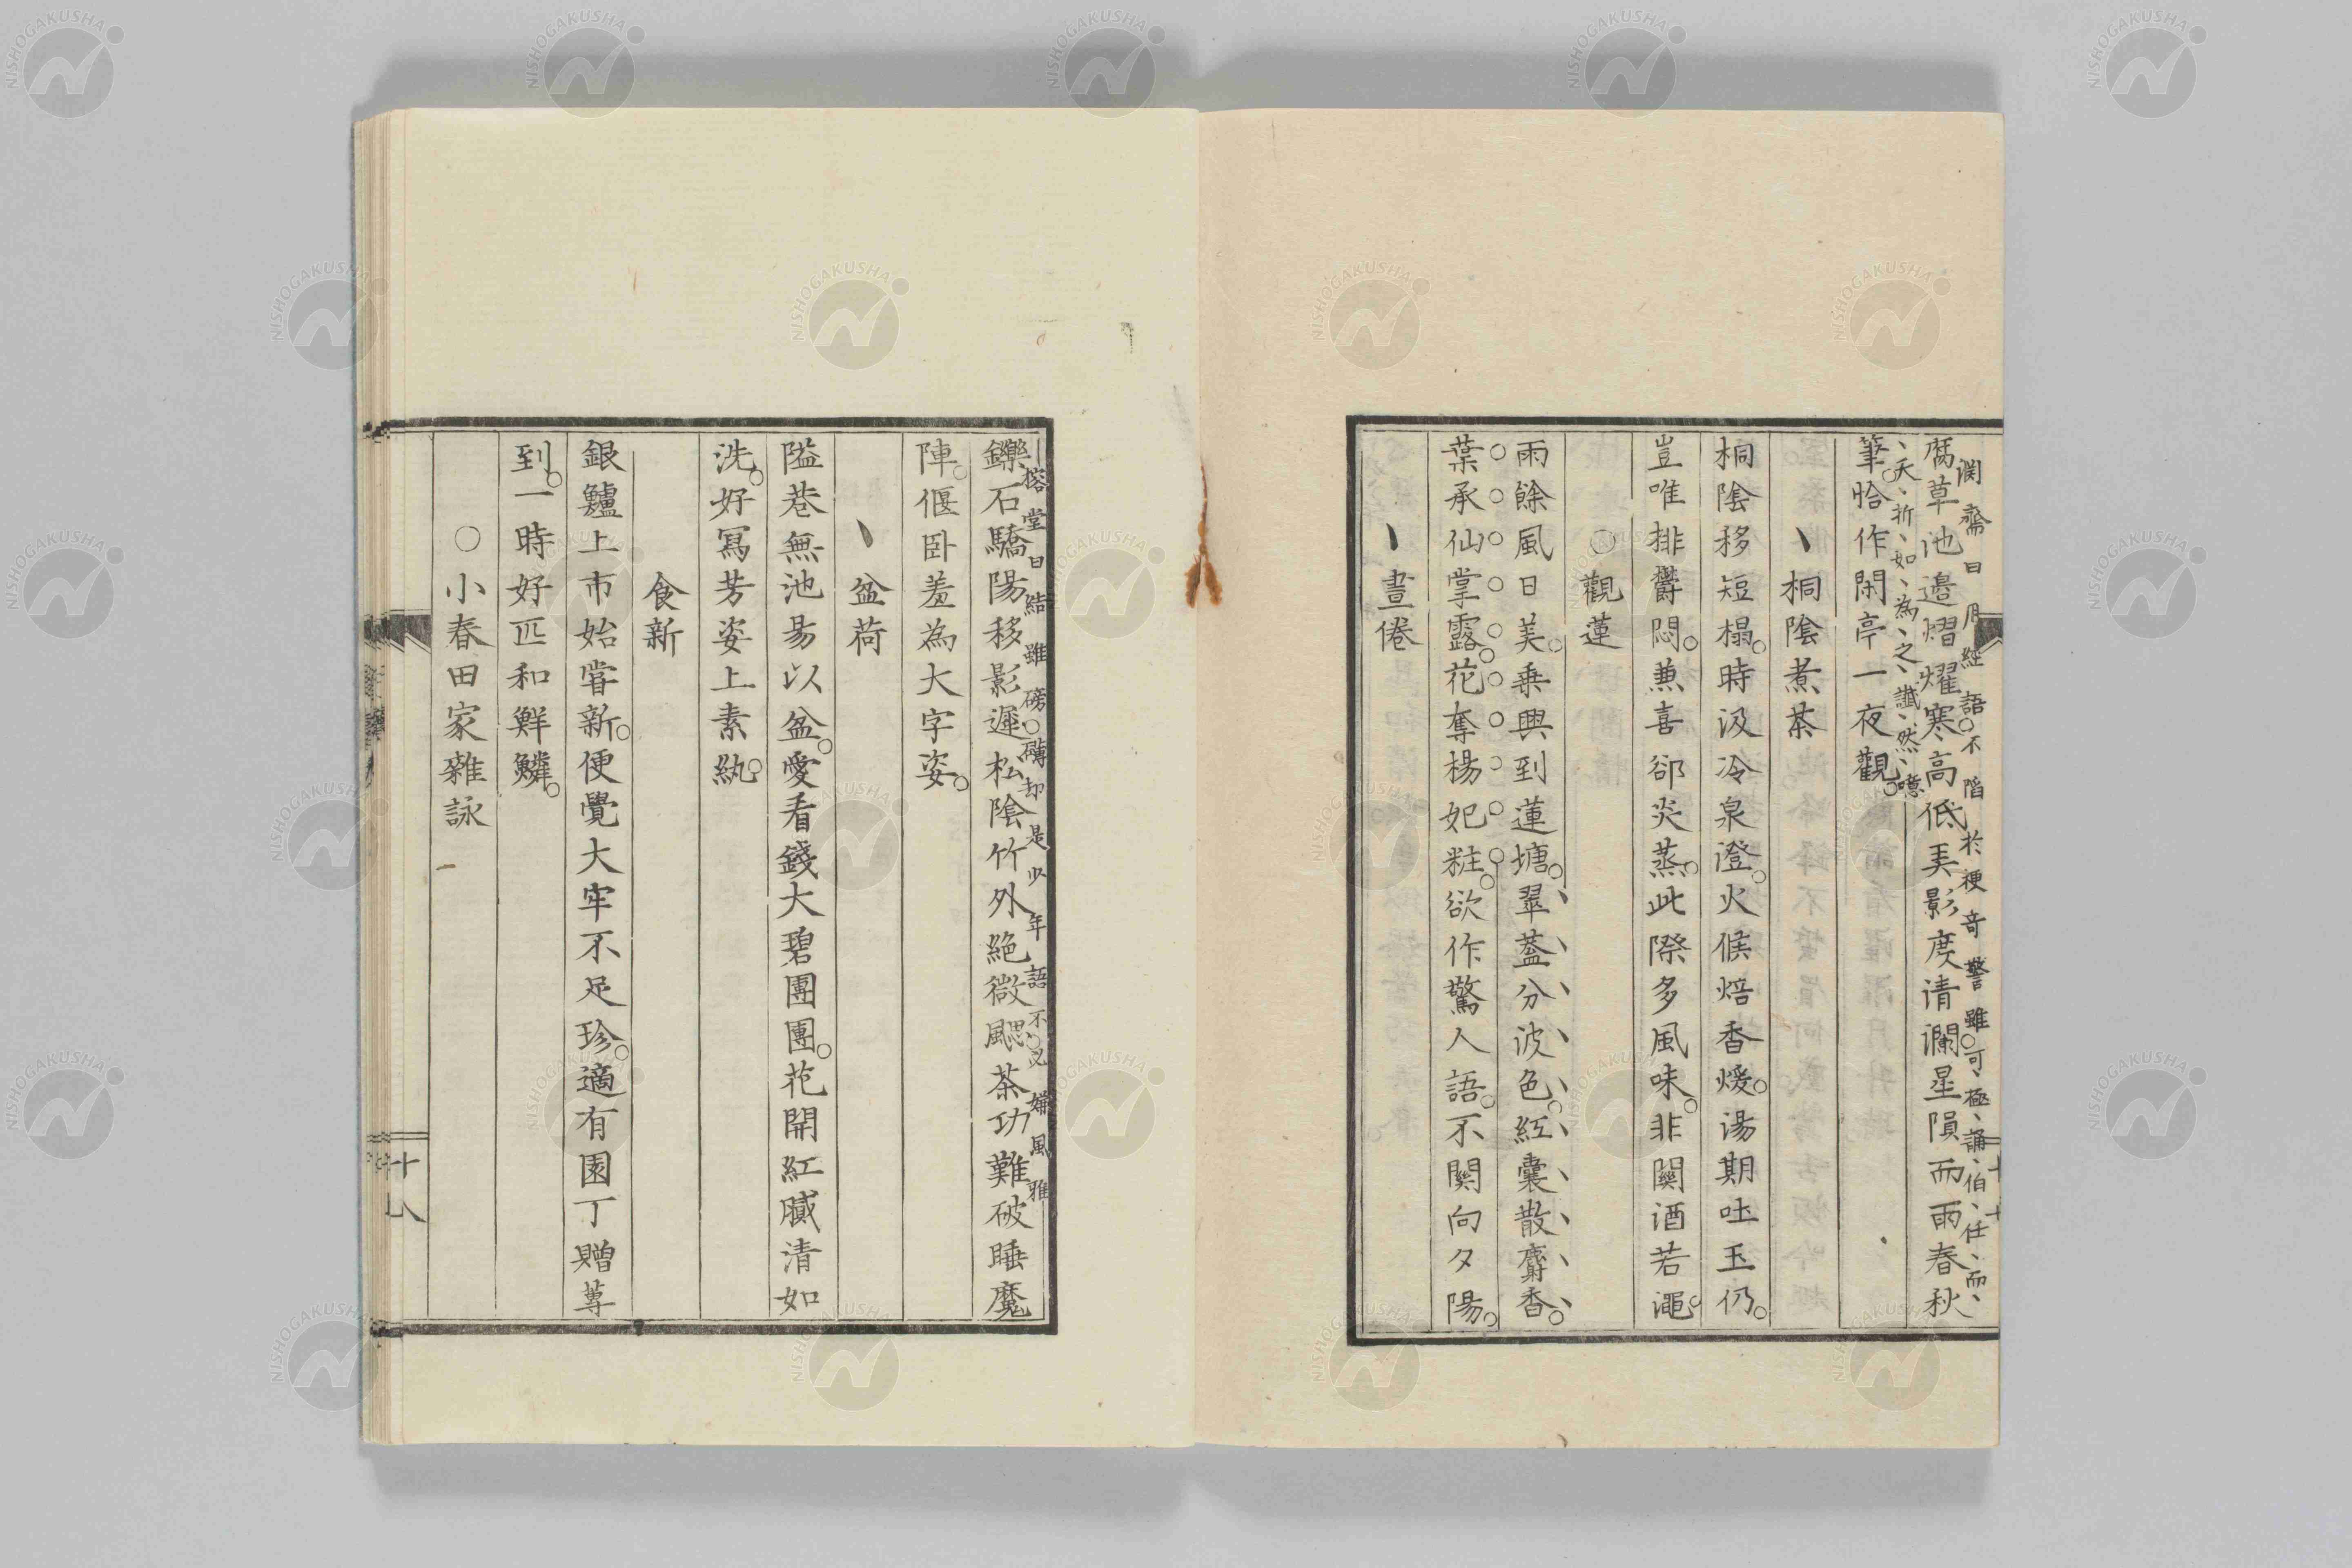 腐草池邉熠燿寒高低弄影度清瀾星隕而雨春秋
澗齋曰月經語不陷於梗奇警雖可極誦伯任而
夭折如為之讖然噫
筆恰作閑亭一夜觀
桐陰煮茶
桐陰移短榻時汲冷泉澄火候焙香煖湯期吐玉仍
豈唯排欝悶兼喜郤炎蒸此際多風味非関酒若澠
○觀蓮
雨餘風日美乗興到蓮塘翠蓋分波色紅囊散麝香
葉承仙掌露花奪楊妃粧欲作驚人語不関向夕陽
晝倦
鑠石驕陽移影遲松陰竹外絶微颸茶功難破睡魔
榕堂曰結雖磅礴却是少年語不必嫌風雅
陣偃卧羞為大字姿
盆荷
隘巷無池易以盆愛看錢大碧團團花開紅膩清如
洗好冩芳姿上素紈
食新
銀鱸上市始甞新便覺大牢不足珍適有園丁贈蓴
到一時好匹和鮮鱗
○小春田家雜詠
十八
NISHOGAKUSHA